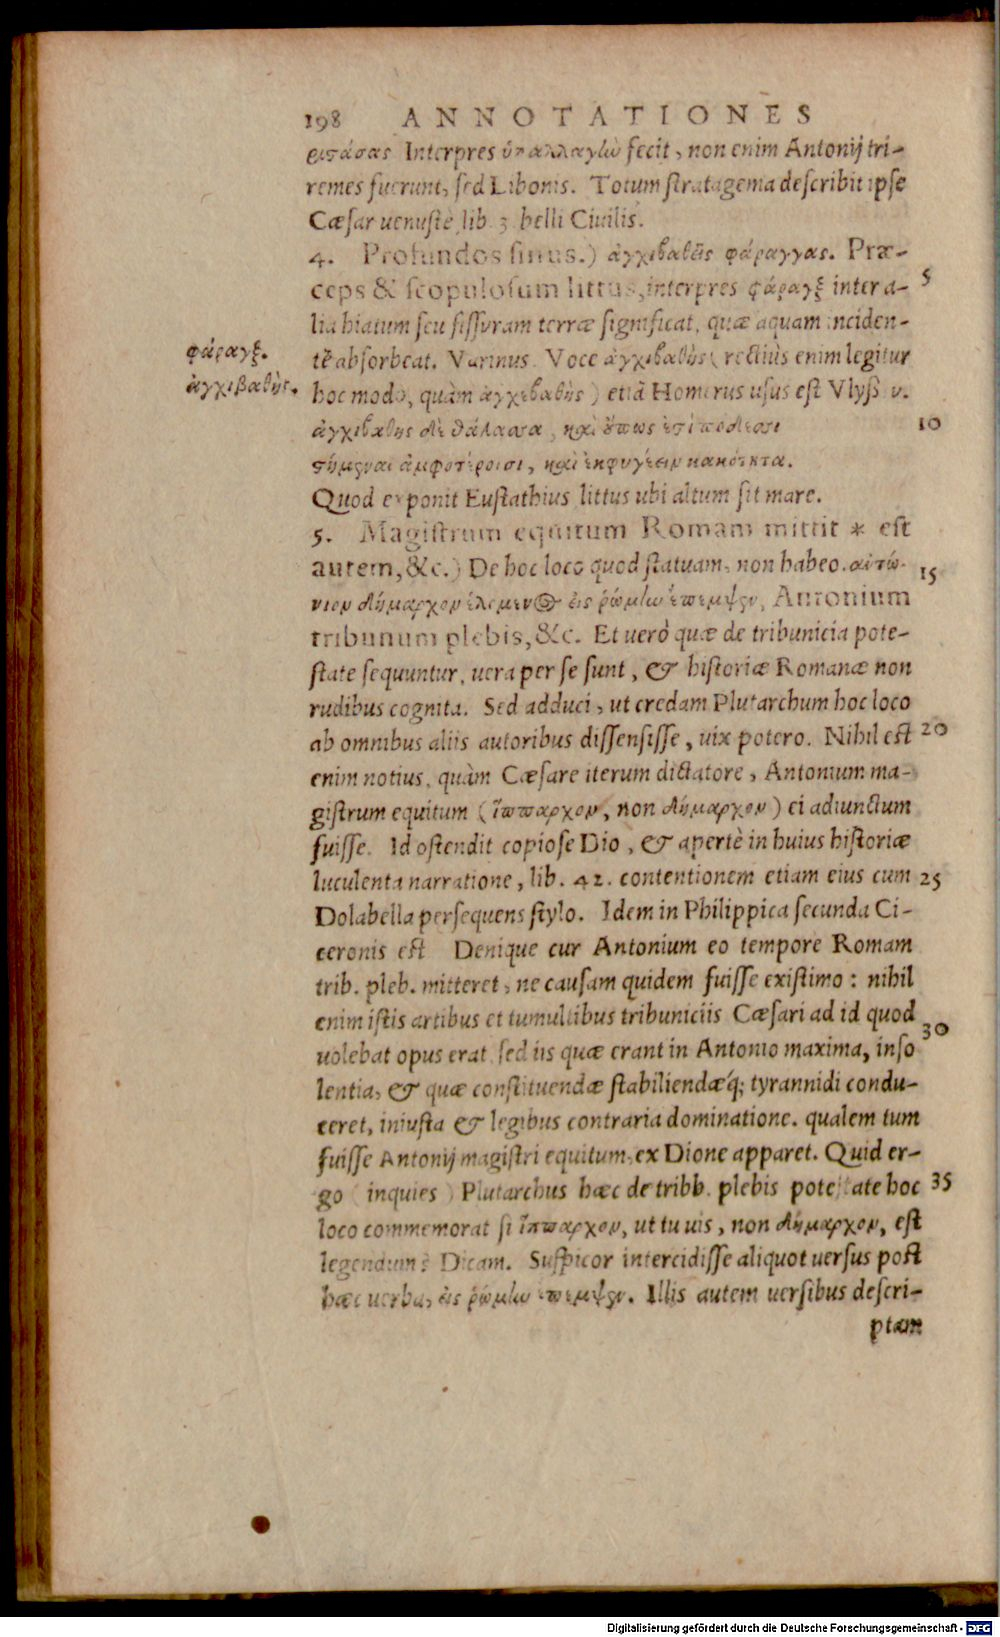 198 ANNOTATIONES
ρισάσας Interpres ὑπαλλαγὼ fecit, non enim Antonij tri-
remes fuerunt, sed Libonis. Totum stratagema describit ipse
Cæsar uenustè lib. 3 belli Ciuilis.
4. Profundos sinus.) ἀγχιβαθεῖς φάραγγας. Præ-
ceps & scopulosum littus, interpres φάραγξ inter a-
5
lia hiatum seu fissuram terræ significat, quæ aquam inciden-
φάραγξ.
tē absorbeat. Varinus. Voce ἀγχιβαθὴς (rectiùs enim legitur
ἀγχιβαθὴς.
hoc modo, quàm ἀγχεβαθὴς) etiā Homerus usus est Vlyss. υ.
ἀγχιβαθης δὲ θάλασσα, καὶ οὔπως ἐστὶ πόδεσσι
10
στήμεναι ἀμφοτέροισι, καὶ ἐκφυγέειν κακότητα.
Quod exponit Eustathius littus ubi altum sit mare.
5. Magistrum equitum Romam mittit * est
autem, &c.) De hoc loco quod statuam, non habeo. αὐτώ-
15
νιον δήμαρχον ἑλόμενος εἰς ῥώμην ἔπεμψεν, Antonium
tribunum plebis, &c. Et uerò quæ de tribunicia pote-
state sequuntur, uera per se sunt, & historiæ Romanæ non
rudibus cognita. Sed adduci, ut credam Plutarchum hoc loco
ab omnibus aliis autoribus dissensisse, uix potero. Nihil est
20
enim notius, quàm Cæsare iterum dictatore, Antonium ma-
gistrum equitum (ἵππαρχον, non δήμαρχον) ei adiunctum
fuisse. Id ostendit copiose Dio, & apertè in huius historiæ
luculenta narratione, lib. 42. contentionem etiam eius cum
25
Dolabella persequens stylo. Idem in Philippica secunda Ci-
ceronis est Denique cur Antonium eo tempore Romam
trib. pleb. mitteret, ne causam quidem fuisse existimo: nihil
enim istis artibus et tumultibus tribuniciis Cæsari ad id quod
30
uolebat opus erat, sed iis quæ erant in Antonio maxima, inso
lentia, & quæ constituendæ stabiliendæq́; tyrannidi condu-
ceret, iniusta & legibus contraria dominatione. qualem tum
fuisse Antonij magistri equitum, ex Dione apparet. Quid er-
go (inquies) Plutarchus hæc de tribb. plebis potestate hoc
35
loco commemorat si ἵππαρχον, ut tu uis, non δήμαρχον, est
legendum? Dicam. Suspicor intercidisse aliquot uersus post
hæc uerba, εἰς ῥώμην ἔπεμψεν. Illis autem uersibus descri-
ptam
Digitalisierung gefördert durch die Deutsche Forschungsgemeinschaft - DFG